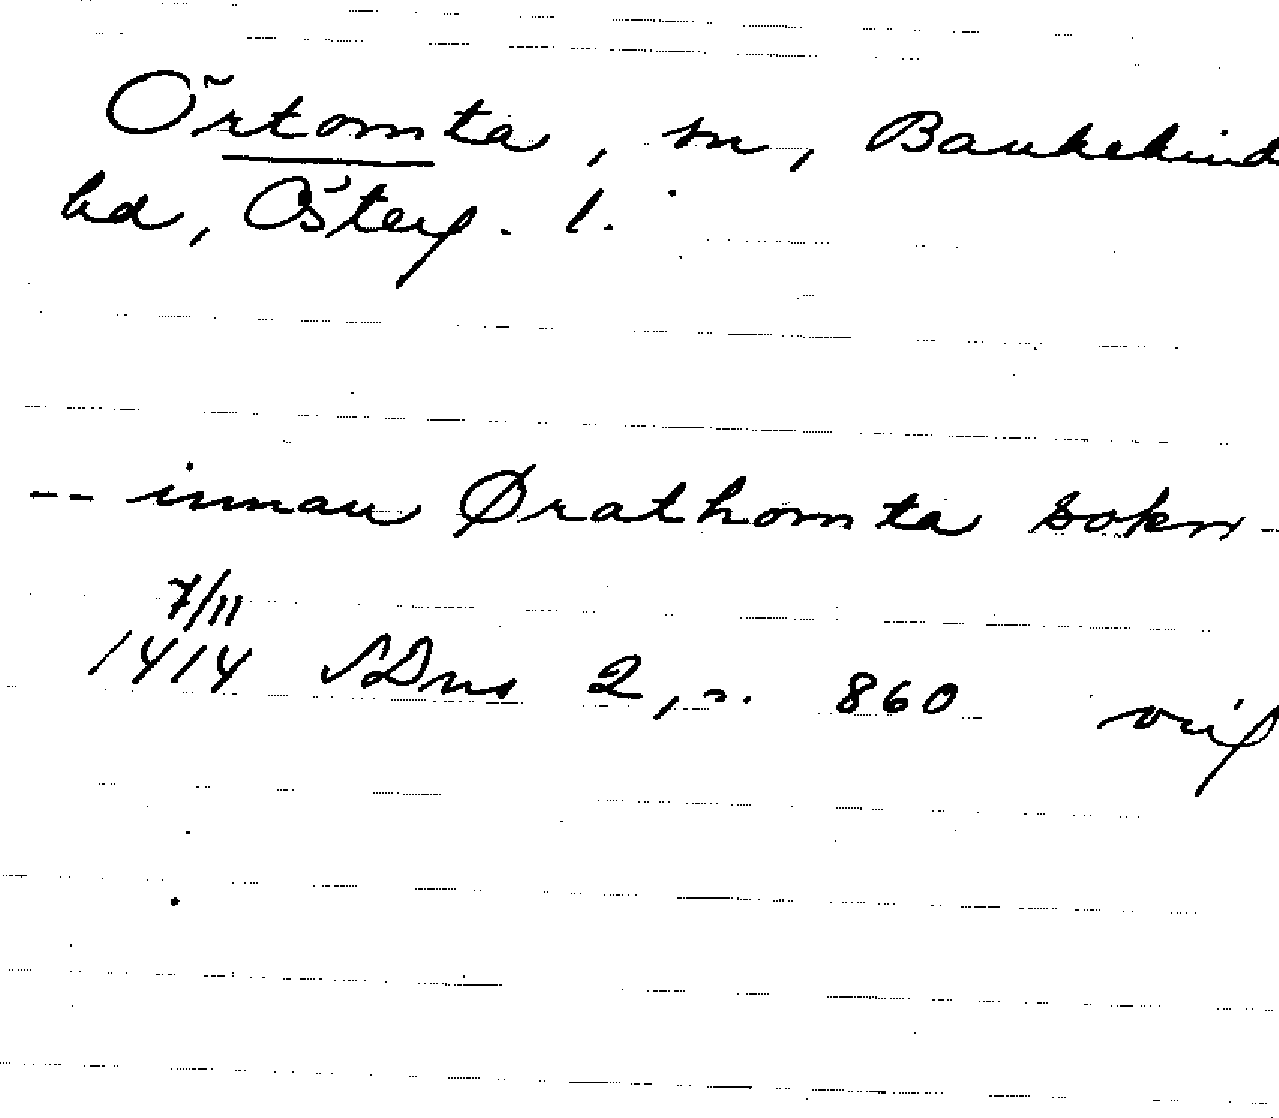 Örtomta, sn, Bankekind
hd, Österg. l.
-- innan Ørathomta sokn -
7/11
1414 SDns 2, s. 860 orig